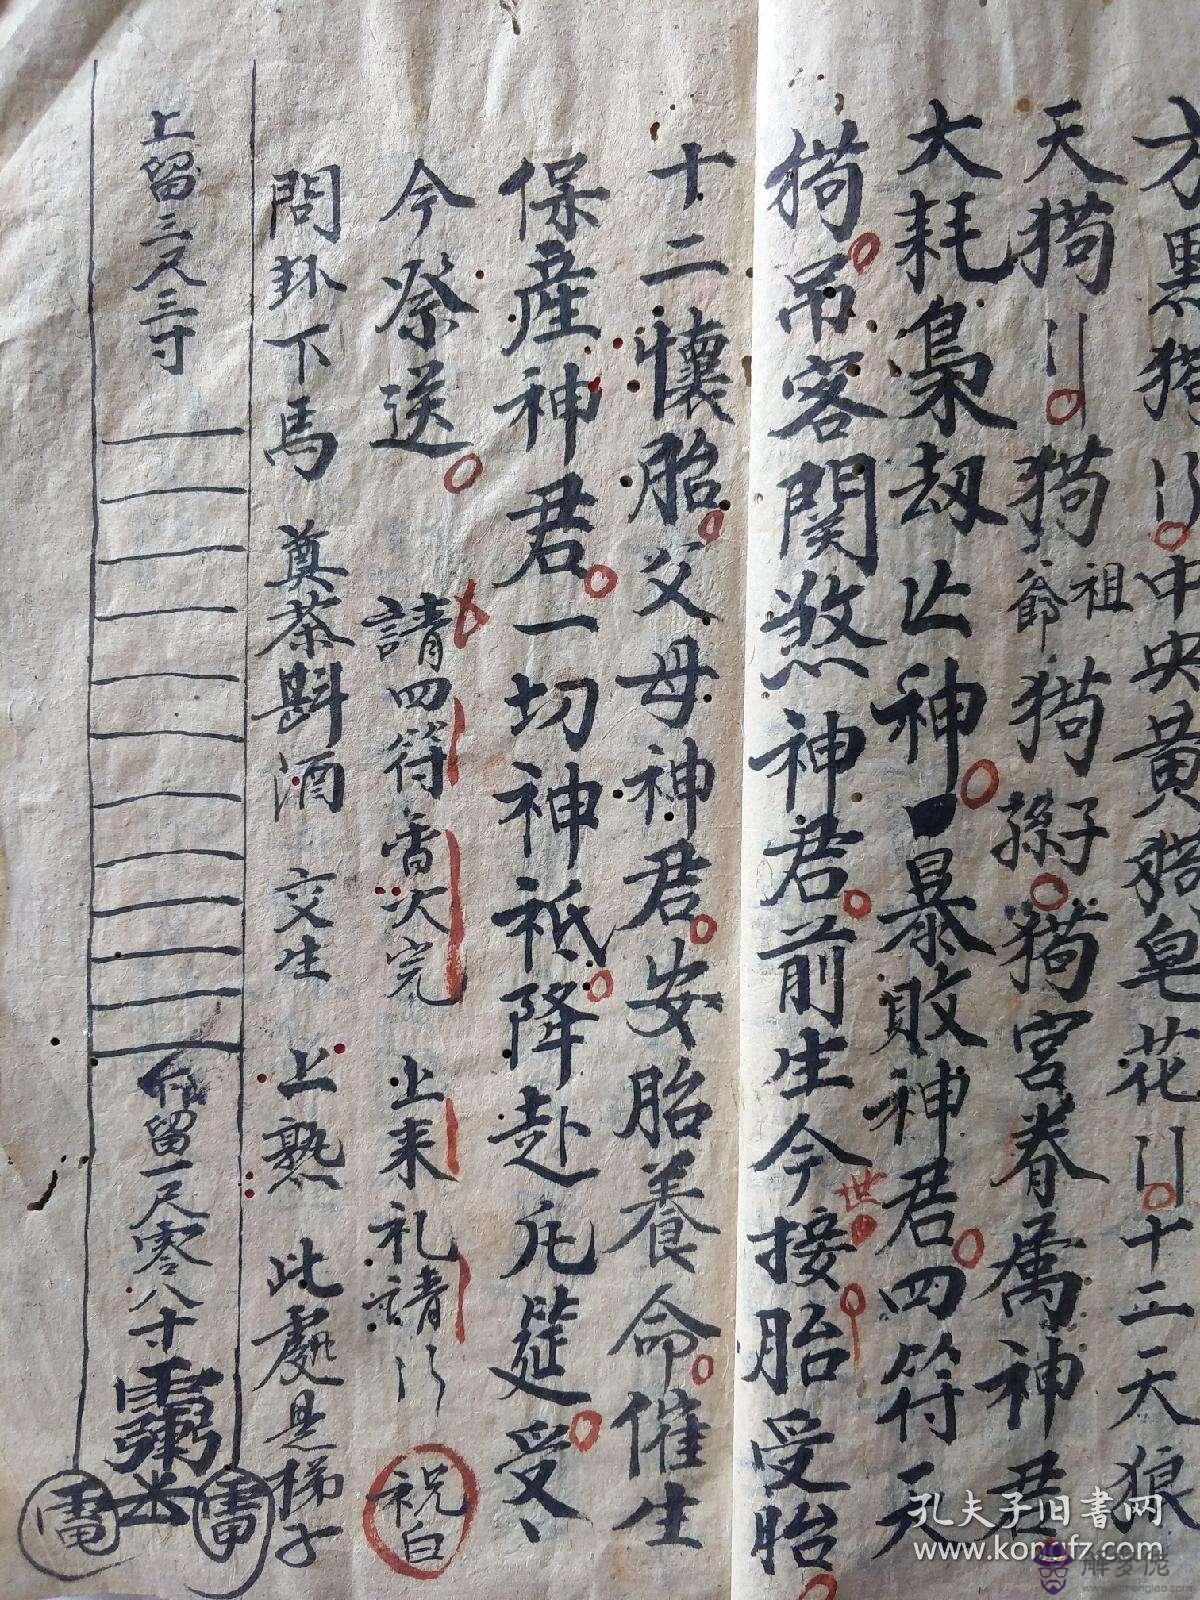 方黑猪〢中央黃猪皂花〢十二天狼
天猗〢猗祖爺猗子孫猗宮眷属神君
大耗梟劫亡神暴敗神君四符天
猗吊客関煞神君前生今世接胎受胎
十二懷胎父母神君安胎養命催生
保産神君一切神祇降赴凡筵受〻
今祭送
請四符香次完 上来礼請〢 祝白
問卦下馬 奠茶斟酒 交生 上熟 此處是梯子
上留三尺三寸
留一尺零八寸
孔夫子旧书网
www.kongfz.com
解梦佬
www.jiemenglao.com